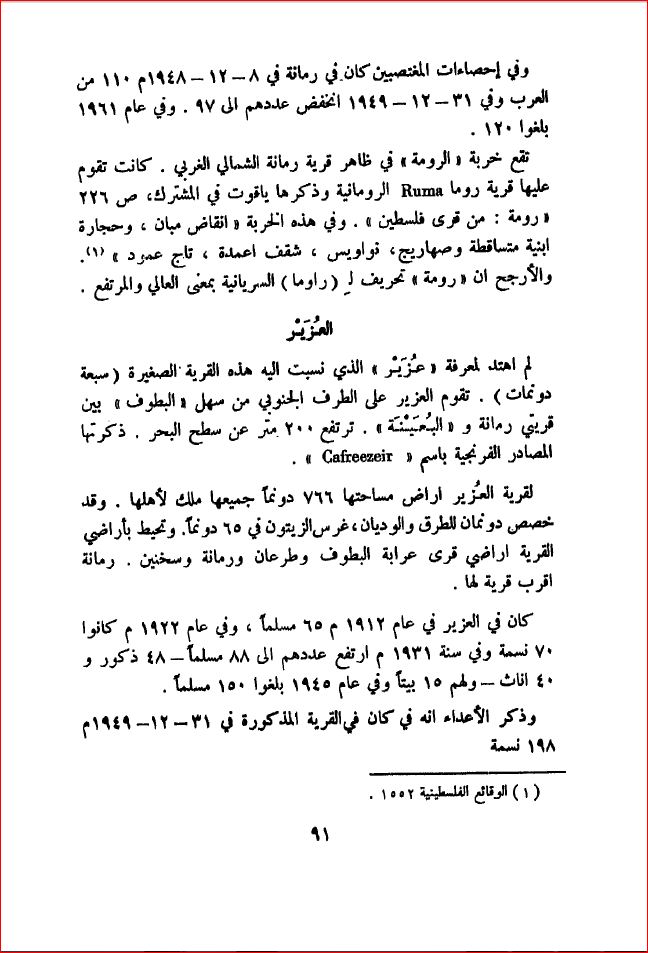 وفي إحصاءات المغتصبين كان في رمانة في ٨ – ١٢ – ١٩٤٨م ١١٠ من
العرب وفي ٣١ – ١٢ – ١٩٤٩ انخفض عددهم الى ٩٧ . وفي عام ١٩٦١
بلغوا ١٢٠ .
تقع خربة « الرومة » في ظاهر قرية رمانة الشمالي الغربي . كانت تقوم
عليها قرية روما Ruma الرومانية وذكرها ياقوت في المشترك، ص ٢٢٦
« رومة : من قرى فلسطين » . وفي هذه الخربة « انقاض مبان ، وحجارة
ابنية متساقطة وصهاريج، نواويس ، شقف اعمدة ، تاج عمود » (١).
والأرجح ان « رومة » تحريف لـِ ( راوما ) السريانية بمعنى العالي والمرتفع .
العُزَيْر
لم اهتد لمعرفة « عُزَيْر » الذي نسبت اليه هذه القرية الصغيرة ( سبعة
دونمات ) . تقوم العزير على الطرف الجنوبي من سهل « البطوف » بين
قريتي رمانة و « البُعَيْنَة » . ترتفع ٢٠٠ متر عن سطح البحر . ذكرتها
المصادر الفرنجية باسم « Cafreezeir » .
لقرية العُزير اراض مساحتها ٧٦٦ دونماً جميعها ملك لأهلها . وقد
خصص دونمان للطرق والوديان، غرس الزيتون في ٦٥ دونماً. وتحيط بأراضي
القرية اراضي قرى عرابة البطوف وطرعان ورمانة وسخنين . رمانة
اقرب قرية لها .
كان في العزير في عام ١٩١٢ م ٦٥ مسلماً ، وفي عام ١٩٢٢ م كانوا
٧٠ نسمة وفي سنة ١٩٣١ م ارتفع عددهم الى ٨٨ مسلماً – ٤٨ ذكور و
٤٠ اناث – ولهم ١٥ بيتاً وفي عام ١٩٤٥ بلغوا ١٥٠ مسلماً .
وذكر الأعداء انه في كان في القرية المذكورة في ٣١ – ١٢ – ١٩٤٩م
١٩٨ نسمة
( ١ ) الوقائع الفلسطينية ١٥٥٢ .
٩١